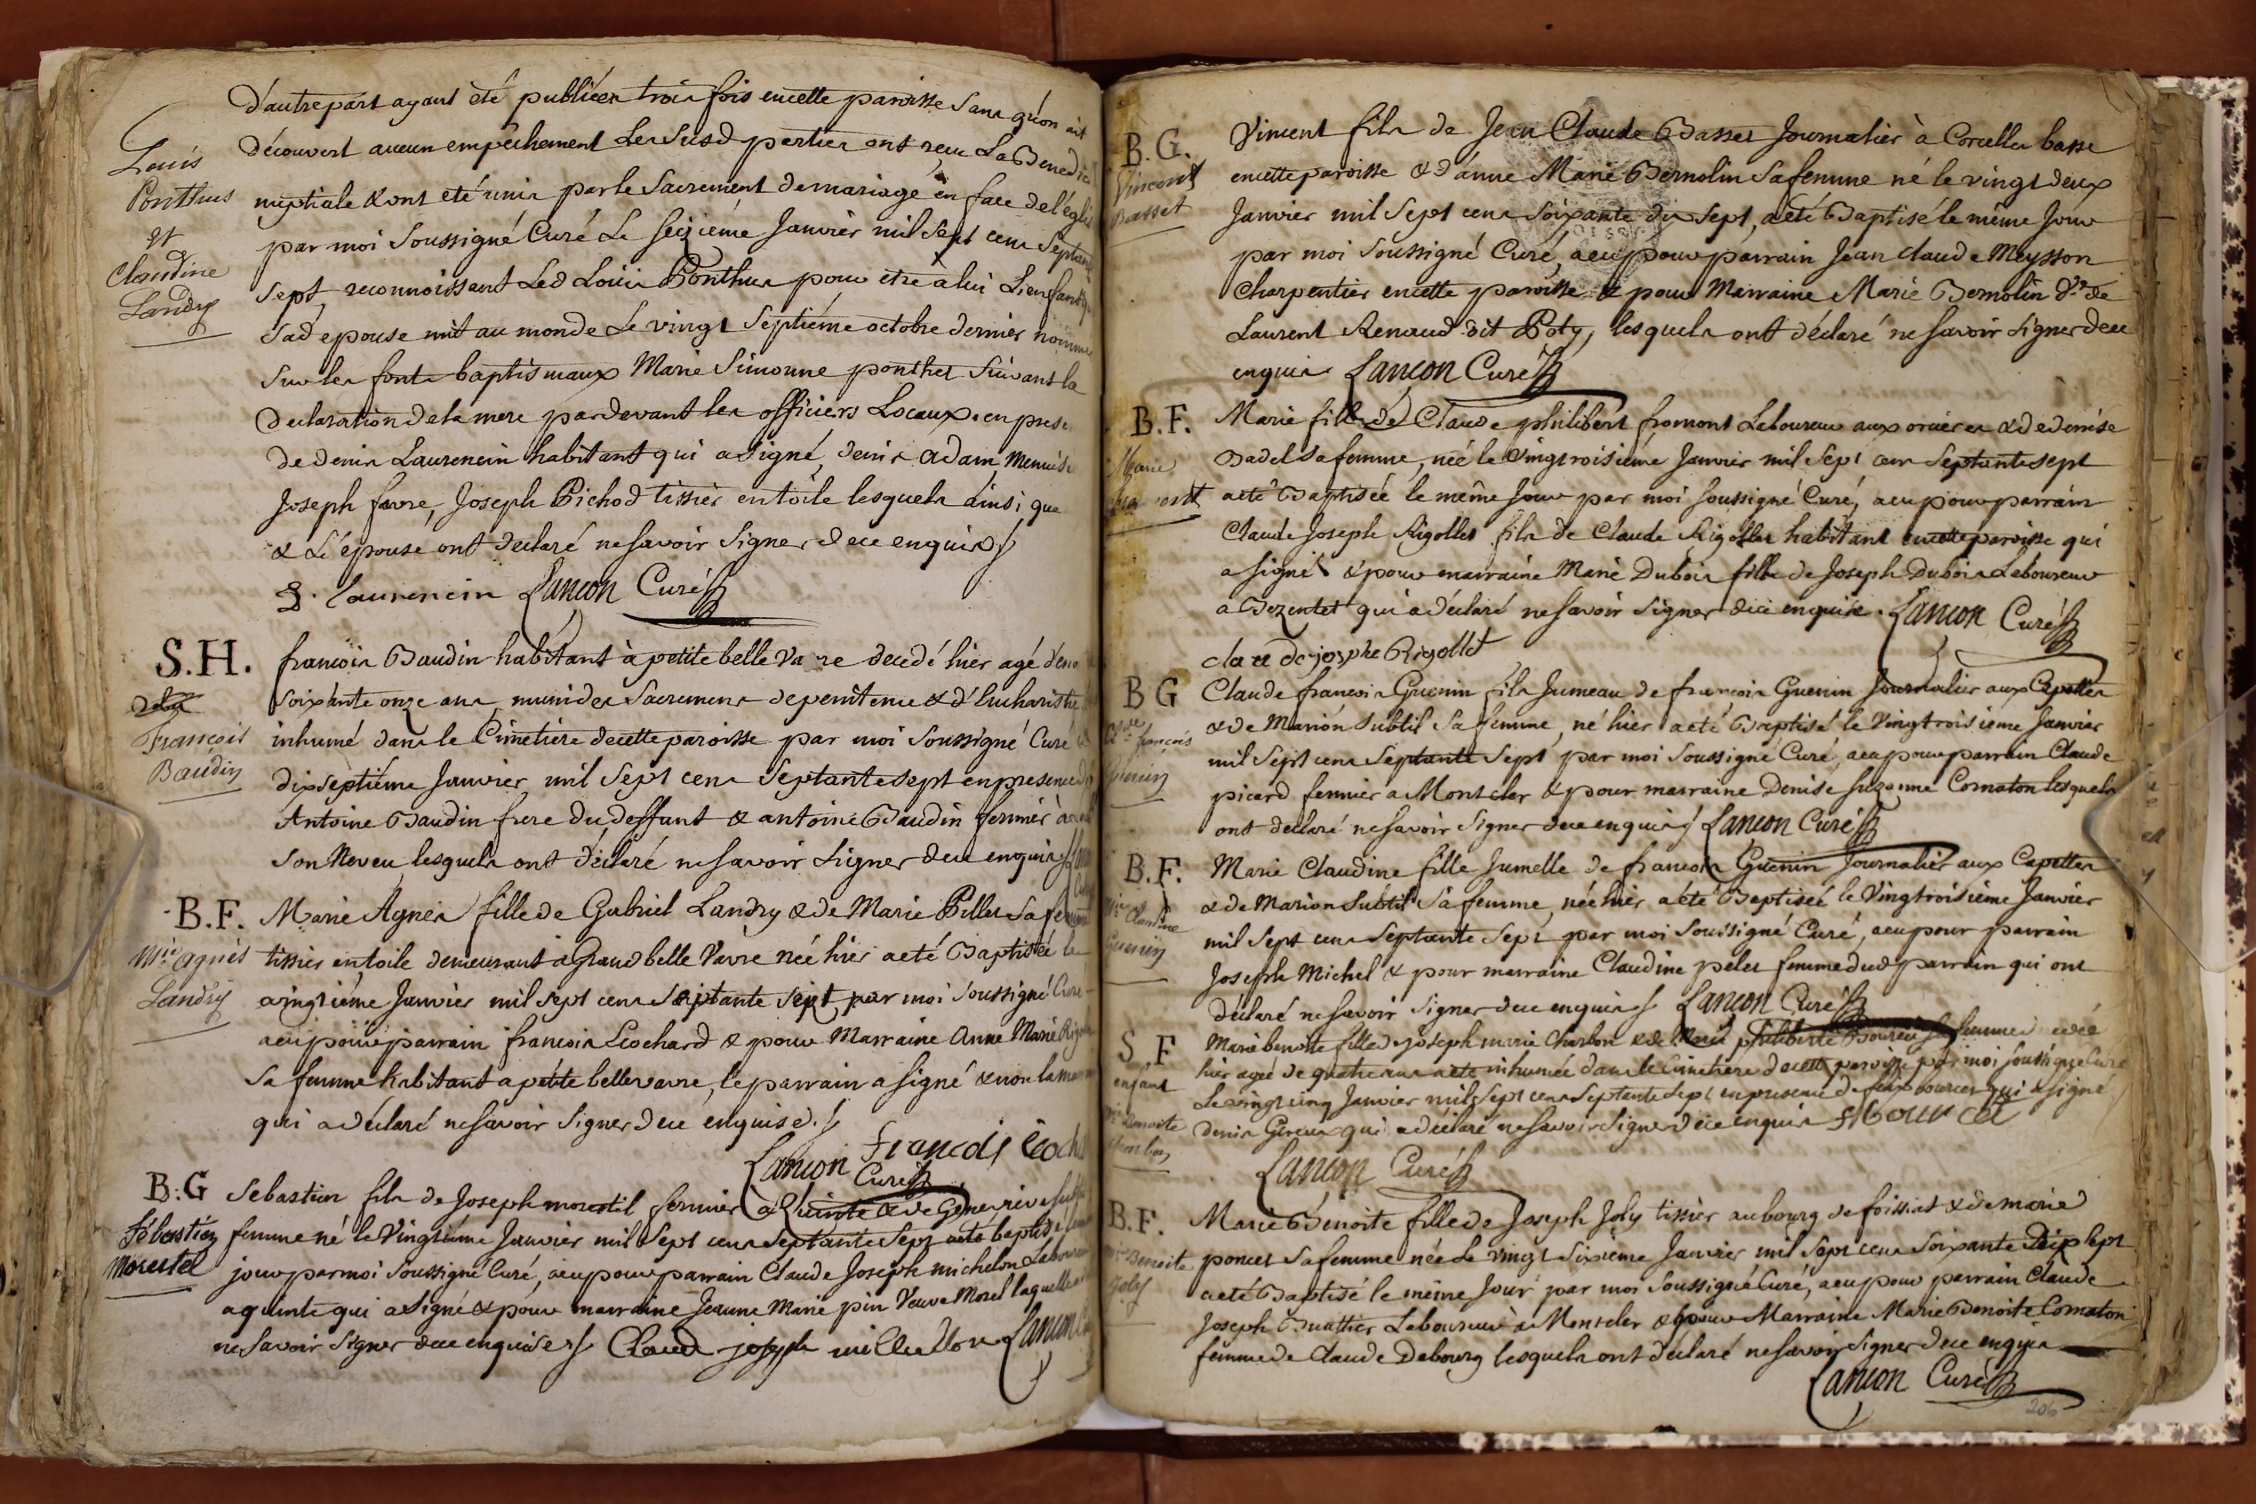 d'autre part ayant été publiées trois fois en cette paroisse sans qu'on ait
découvert aucun empêchement Les Susd parties ont reçu La Benedic
Louis
Ponthus
et
Claudine
Landry
nuptiale & ont été unis par le Sacrement de mariage en face de l'églis
par moi Soussigné Curé Le Seizième Janvier mil Sept cens Septante
Sept, reconnoissant Led Louis Ponthus pour être à lui L'enfant q
Sad épouse mit au monde Le vingt Septième octobre dernier nommé
Sur les fonts baptismaux Marie Simonne ponthus Suivant la
Declaration de la mere pardevant les officiers Locaux. en prese
de denis Laurencin habitant qui a signé, denis adam Menuisi
Joseph favre, Joseph Pichod tissier en toile lesquels ainsi que
& L'épouse ont declaré ne savoir Signer de ce enquis
D. laurencin Lançon Curé
S.H.
François
Baudin
francois Baudin habitant à petite belle Va re decedé hier agé d'env
soixante onze ans, muni des Sacremens de penitence & d'Eucharistie
inhumé dans le Cimetière de cette paroisse par moi Soussigné Curé
dix septième Janvier mil Sept cens Septante sept en presence d
Antoine Baudin frere du deffunt & antoine Baudin fermier à
son Neveu lesquels ont déclaré ne Savoir Signer de ce enquis
B.F.
Mrie agnès
Landry
Marie Agnès fille de Gabriel Landry & de Marie Pillet Sa femme
tissier en toile demeurant à Grand belle Vavre née hier a eté Baptisée le
vingtième Janvier mil Sept cens Septante Sept par moi Soussigné Curé
a eu pour parrain francois Cochard & pour Marraine Anne Marie
Sa femme habitant a petite bellevavre, le parrain a signé & non la
qui a déclaré ne savoir Signer de ce enquise.
Lançon Curé françois Coch
B.G
Sébastien
morestel
Sebastien fils de Joseph morestil fermier à Quinte & de Genevieve
femme né le Vingtième Janvier mil Sept cens Septante Sept a eté baptisé le
jour par moi Soussigné Curé, a eu pour parrain Claude Joseph michelon Laboureur
a quinte qui a signé & pour marraine Jeanne Marie pin Veuve Morel laquelle
ne savoir Signer de ce enquise Claud joseph Lançon
B.G.
Vincent
Basset
Vincent fils de Jean Claude Basset Journalier à Corcelles basse
en cette paroisse & d'anne Marie Bernolin Sa femme né le vingt deux
Janvier mil Sept cens Soixante dix Sept, a eté Baptisé le même Jour
par moi Soussigné Curé, a eu pour parrain Jean claude Meysson
Charpentier en cette paroisse & pour Marraine Marie Bernolin Ve de
Laurent Renaud dit Poty, lesquels ont déclaré ne savoir signer de ce
enquis Lançon Curé
B.F.
Marie
Marie fille de Claude philibert fromont Laboureur aux orcières & de denise
Badel sa femme, née le Vingtroisième Janvier mil Sept cens Septante sept
a eté Baptisée le même Jour par moi soussigné Curé, a eu pour parrain
Claude Joseph Rigollet fils de Claude Rigollet habitant en cette paroisse qui
a signé & pour marraine Marie Dubois fille de Joseph Dubois Laboureur
a Bezentet qui a déclaré ne savoir Signer de ce enquise. Lançon Curé
claude josphe Rigollet
B G
Cde françois
Guenin
Claude francois Guenin fils Jumeau de francois Guenin Journalier aux Capettes
& de Marion Subtil Sa femme, né hier a eté Baptisé le Vingtroisième Janvier
mil Sept cens Septante Sept par moi Soussigné Curé, a eu pour parrain Claude
picard fermier a Montcler & pour marraine Denise Suzanne Cornaton lesquels
ont déclaré ne savoir Signer de ce enquis Lançon Curé
B.F.
Mie Claudine
Guenin
Marie Claudine fille Jumelle de francois Guenin Journalier aux Capettes
& de Marion Subtil Sa femme, née hier a été Baptisée le Vingtroisième Janvier
mil Sept cens Septante Sept par moi Soussigné Curé, a eu pour parrain
Joseph Michel & pour marraine Claudine pelet femme dud parrain qui ont
déclaré ne savoir Signer de ce enquis Lançon Curé
S F
enfant
Mie Benoite
Charbon
Marie benoite fille de Joseph marie Charbon & de Marie philiberte sa femme decedée
hier agée de quatre ans a eté inhumée dans le Cimetière de cette paroisse par moi Soussigné Curé
Le vingt cinq Janvier mil Sept cens Septante Sept en presence de felix bourcet qui a signé
denis Gereux qui a déclaré ne savoir Signer de ce enquis f bourcet
Lançon Curé
B.F.
Mie Benoite
Joly
Marie Benoite fille de Joseph Joly tissier au bourg de foissiat & de marie
poncet Sa femme née Le vingt Sixième Janvier mil Sept cens Soixante Dix Sept
a eté Baptisé le même Jour par moi Soussigné Curé, a eu pour parrain Claude
Joseph Buathier Laboureur à Montcler & pour Marraine Marie Benoite Cornaton
femme de Claude Debourg lesquels ont déclaré ne savoir Signer de ce enquis
Lançon Curé
206